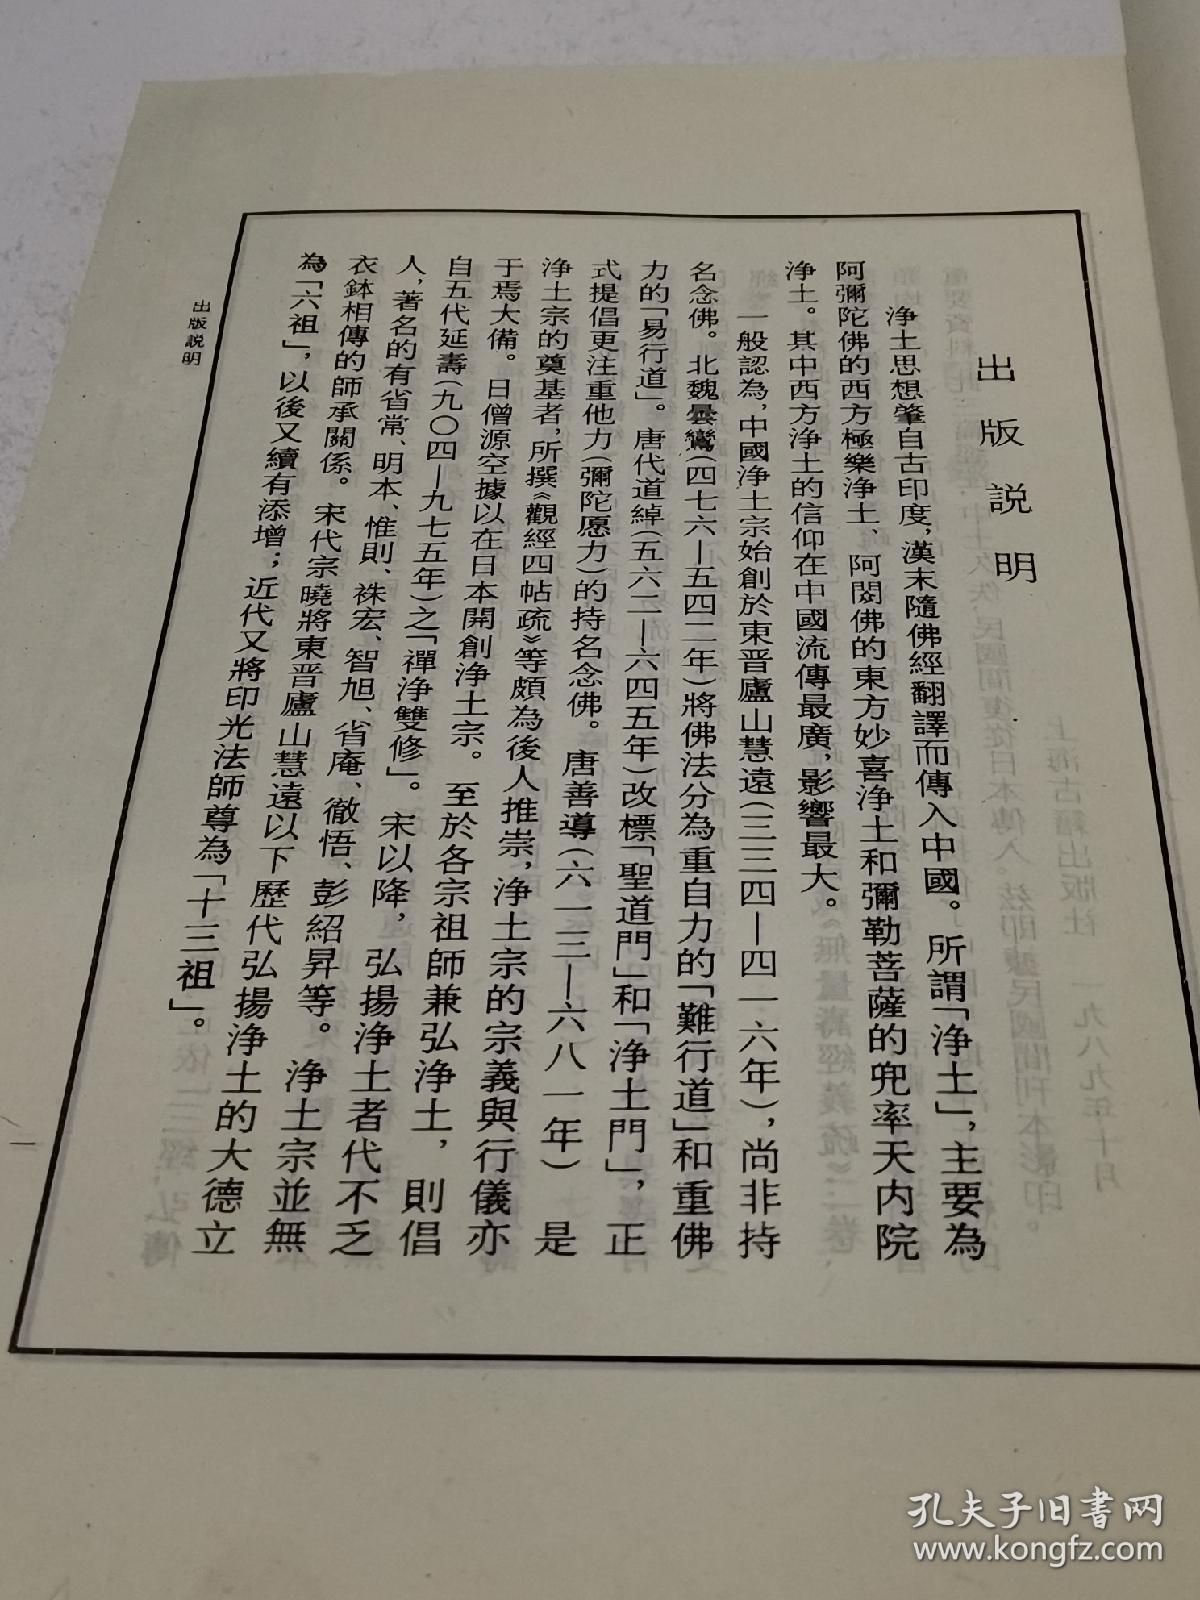 出版説明
净土思想肇自古印度，漢末隨佛經翻譯而傳入中國。所謂「净土」，主要為
阿彌陀佛的西方極樂净土、阿閦佛的東方妙喜净土和彌勒菩薩的兜率天内院
净土。其中西方净土的信仰在中國流傳最廣，影響最大。
一般認為，中國净土宗始創於東晋廬山慧遠（三三四—四一六年），尚非持
名念佛。北魏曇鸞（四七六—五四二年）將佛法分為重自力的「難行道」和重佛
力的「易行道」。唐代道綽（五六二—六四五年）改標「聖道門」和「净土門」，正
式提倡更注重他力（彌陀愿力）的持名念佛。唐善導（六一三—六八一年）是
净土宗的奠基者，所撰《觀經四帖疏》等頗為後人推崇，净土宗的宗義與行儀亦
于焉大備。日僧源空據以在日本開創净土宗。至於各宗祖師兼弘净土，則倡
自五代延壽（九〇四—九七五年）之「禪净雙修」。宋以降，弘揚净土者代不乏
人，著名的有省常、明本、惟則、袾宏、智旭、省庵、徹悟、彭紹昇等。净土宗並無
衣鉢相傳的師承關係。宋代宗曉將東晋廬山慧遠以下歷代弘揚净土的大德立
為「六祖」，以後又續有添增；近代又將印光法師尊為「十三祖」。
出版説明
一
孔夫子旧书网
www.kongfz.com